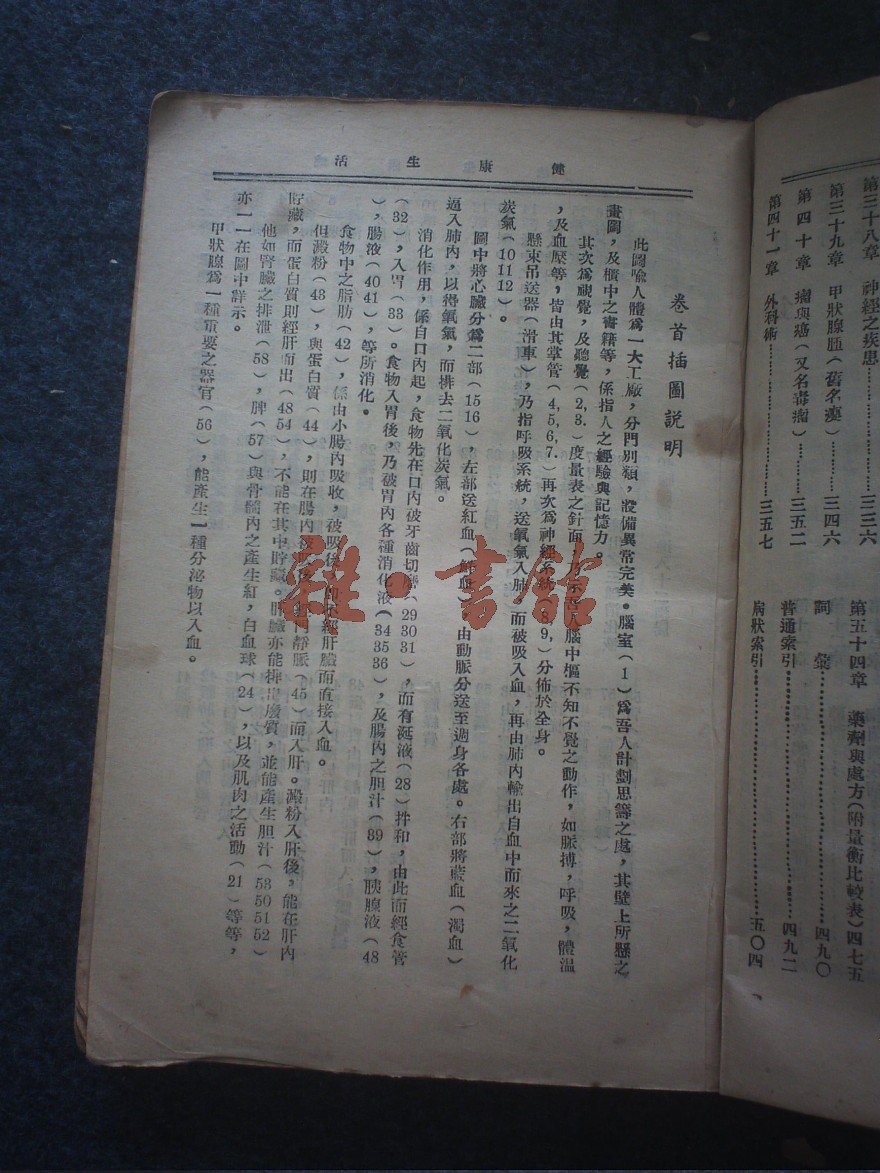 第三十八章　神經之疾患…………三三六
第三十九章　甲狀腺腫（舊名癭）…………三四六
第四十章　瘤與癌（又名毒瘤）…………三五二
第四十一章　外科術…………三五七
第五十四章　藥劑與處方（附量衡比較表）四七五
詞彙…………四九〇
普通索引…………四九二
病狀索引…………五〇四
健康生活
卷首插圖説明
此圖喩人體爲一大工廠，分門別類，設備異常完美。腦室（1）爲吾人計劃思籌之處，其壁上所懸之
畫圖，及櫃中之書籍等，係指人之經驗與記憶力。
其次爲視覺，及聽覺（2,3.）度量表之針面，乃示吾人腦中樞不知不覺之動作，如脈搏，呼吸，體温
，及血壓等，皆由其掌管（4,5,6,7.）再次爲神經系統（8,9,）分佈於全身。
懸束吊送器（滑車），乃指呼吸系統，送氧氣入肺，而被吸入血，再由肺內輸出自血中而來之二氧化
炭氣（10 11 12）。
圖中將心臟分爲二部（15 16），左部送紅血（鮮血）由動脈分送至週身各處。右部將藍血（濁血）
逼入肺內，以得氧氣，而排去二氧化炭氣。
消化作用，係自口內起，食物先在口內被牙齒切磨（29 30 31），而有涎液（28）拌和，由此而經食管
（32），入胃（33）。食物入胃後，乃被胃內各種消化液（34 35 36），及腸內之胆汁（39），胰腺液（48
），腸液（40 41），等所消化。
食物中之脂肪（42），係由小腸內吸收，被吸後，卽不經肝臟而直接入血。
但澱粉（43），與蛋白質（44），則在腸內被吸後，經門靜脈（45）而入肝。澱粉入肝後，能在肝內
貯藏，而蛋白質則經肝而出（48 54），不能在其中貯藏。肝臟亦能排出廢質，並能產生胆汁（53 50 51 52）
他如腎臟之排泄（58），脾（57）與骨髓內之產生紅，白血球（24），以及肌肉之活動（21）等等，
亦一一在圖中詳示。
甲狀腺爲一種重要之器官（56），能產生一種分泌物以入血。
雜·書館